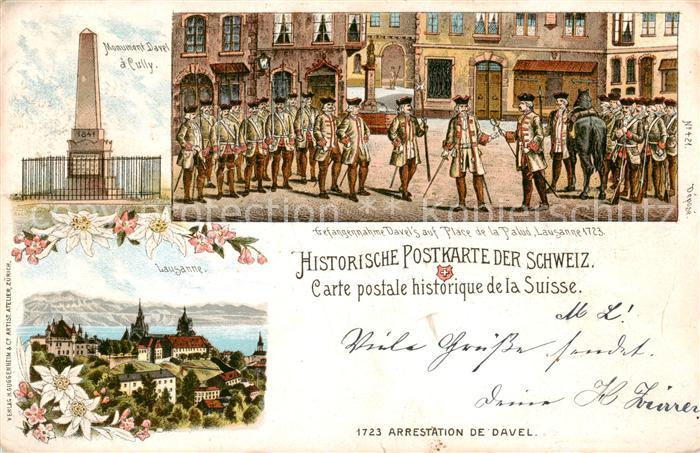 Monument Davel
à Cully.
1841
No 421.
Déposé.
Gefangennahme Davel's auf Place de la Palud, Lausanne 1723.
Lausanne.
HISTORISCHE POSTKARTE DER SCHWEIZ.
Carte postale historique de la Suisse.
M L!
Viele Grüße sendet.
Deine K
1723 ARRESTATION DE DAVEL.
VERLAG H. GUGGENHEIM & Co ARTIST. ATELIER, ZÜRICH.